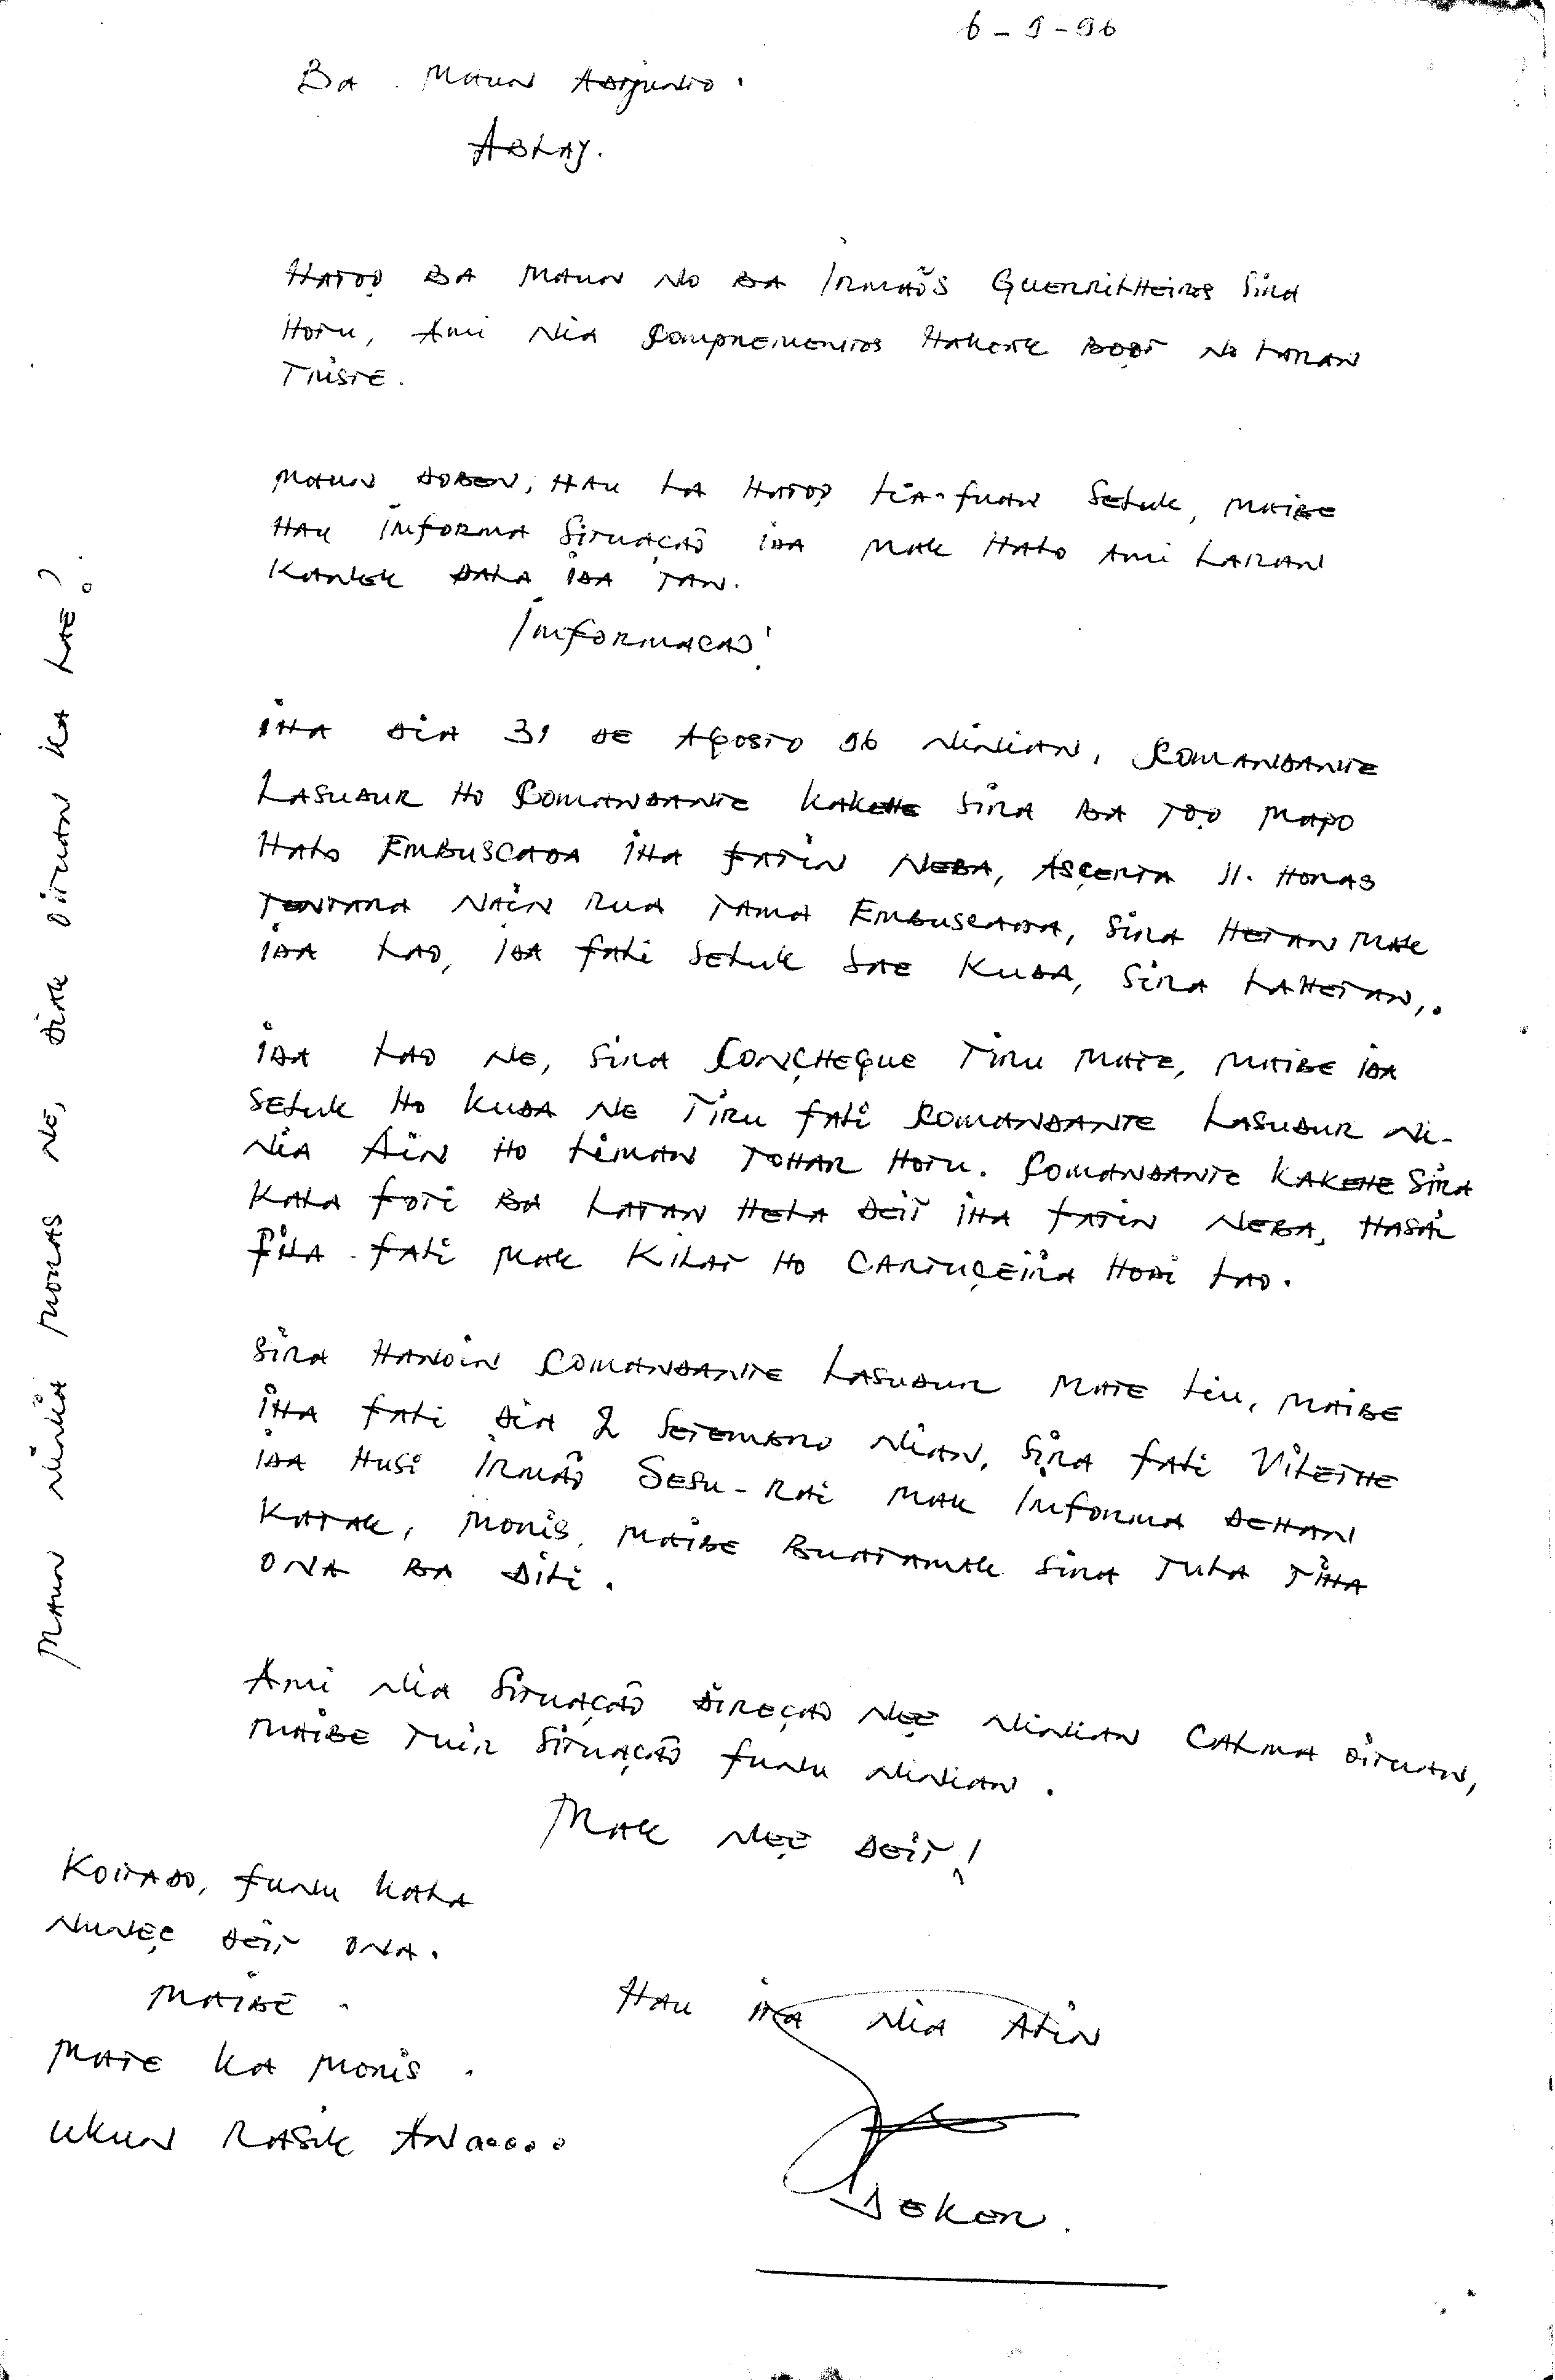 6-9-96
BA MAUN ADJUNTO.
ABLAY.
HATOO BA MAUN NO BA IRMAÕS GUERRILHEIROS SIRA
HOTU, AMI NIA COMPREMENTOS HAKERK BOOT NO LARAN
TRISTE.
MAUN DOBEN, HAU LA HATOO LIA-FUAN SELUK, MAIBE
HAU INFORMA SITUAÇAÕ IDA MAK HALO AMI LARAN
KANEK DALA IDA TAN.
INFORMACAO!
IHA DIA 31 DE AGOSTO 96 NINIAN, COMANDANTE
LASUDUR HO COMANDANTE KAKEHE SIRA BA TOO MAPO
HALO EMBUSCADA IHA FATIN NEBA, ASÇERTA 11. HORAS
TENTARA NAIN RUA TAMA EMBUSCADA, SIRA HETAN MAK
IDA LAO, IDA FALI SELUK SAE KUDA, SIRA LAHETAN,.
IDA LAO NE, SIRA CONÇHEGUE TIRU MATE, MAIBE IDA
SELUK HO KUDA NE TIRU FALI COMANDANTE LASUDUR NI-
NIA AIN HO LIMAN TOHAR HOTU. COMANDANTE KAKEHE SIRA
KALA FOTI BA LATAN HELA DEIT IHA FATIN NEBA, HASAI
FILA FALI MAK KILAT HO CARTUÇEIRA HODI LAO.
SIRA HANOIN COMANDANTE LASUDUR MATE LIU, MAIBE
IHA FALI DIA 2 SETEMBRO NIAN, SIRA FALI VILETHE
IDA HUSI IRMAÕ SESU-RAI MAK INFORMA DEHAN
KATAK, MORIS, MAIBE BUATAMAK SIRA TULA TIHA
ONA BA DILI.
AMI NIA SITUAÇAÕ DIREÇAO NEE NINIAN CALMA OITUAN,
MAIBE TUIR SITUAÇAÕ FUNU NINIAN.
MAK NEE DEIT!
KOITADO, FUNU KALA
NUNEE DEIT ONA.
MAIBE.
MATE KA MORIS.
UKUN RASIK AN.....
HAU IKA NIA ALIN
DEKER.
MAUN NINIA MORAS NE, DIAK OITUAN KA LAE?